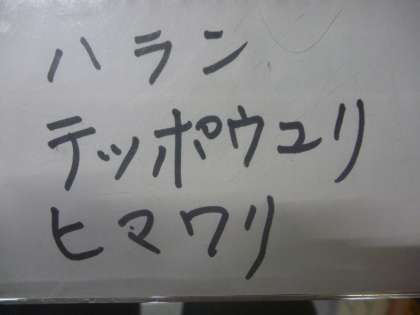 ハラン
テッポウユリ
ヒマワリ